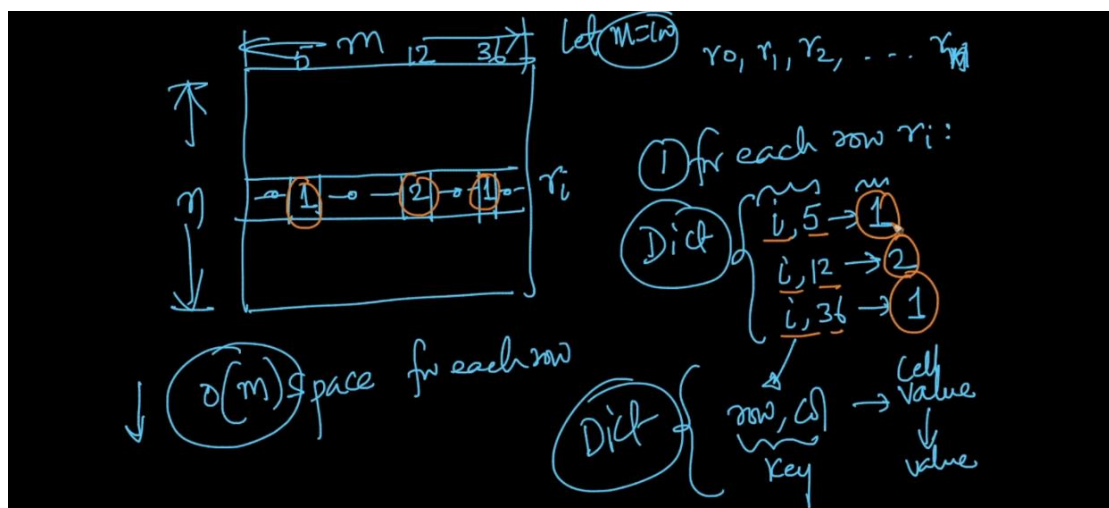 m
5 12 36
Let m=100
r0, r1, r2, .... rn
n
1 2 1
ri
① for each row ri:
Dict
i, 5 → 1
i, 12 → 2
i, 36 → 1
O(m) space for each row
Dict
row, col → cell value
key
value